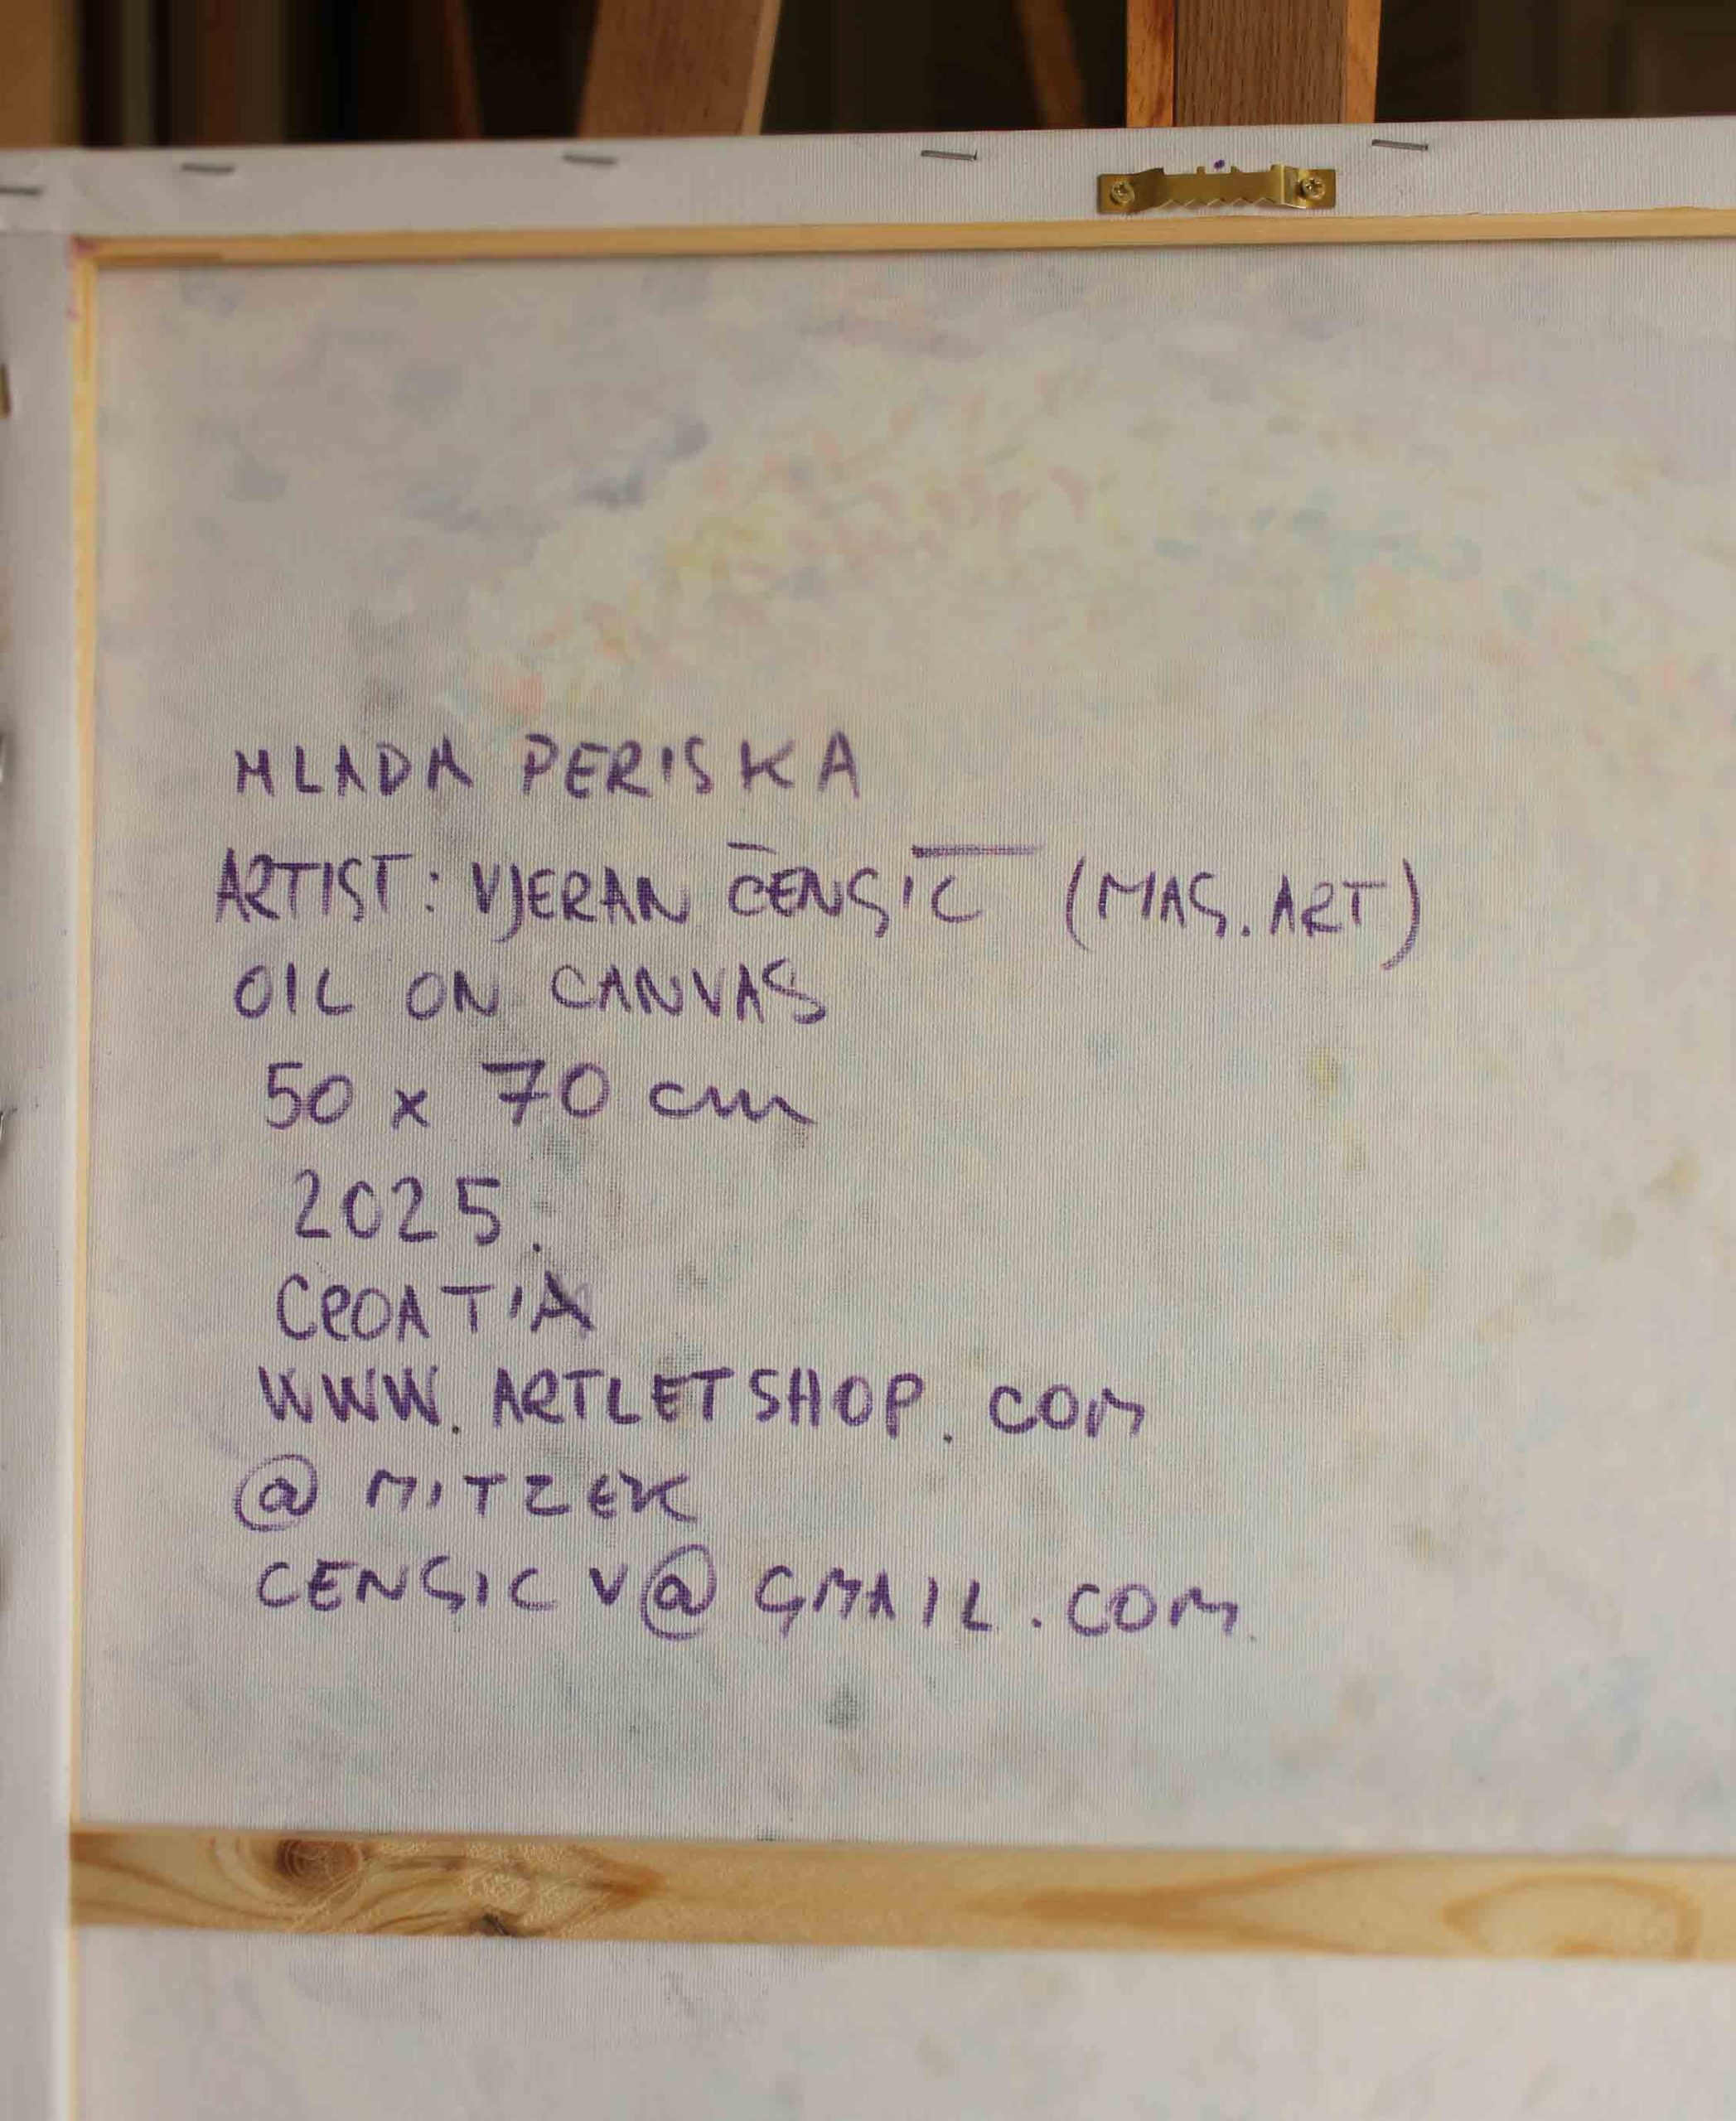 MLADA PERISKA
ARTIST: VJERAN ČENSIĆ (MAS. ART)
OIL ON CANVAS
50 x 70 cm
2025.
CROATIA
WWW. ARTLETSHOP. COM
@ MITZEK
CENSIC V@ GMAIL. COM